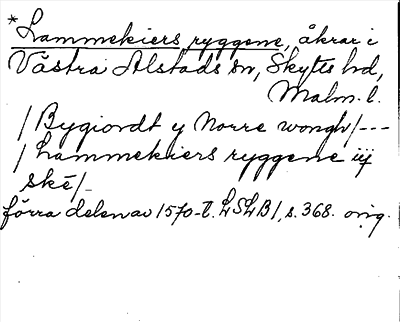 *Lammekiers ryggene, åkrar i
Västra Alstads sn, Skytts hd,
Malm. l.
/Bygiordt y Norre wongh/---
/Lammekiers ryggene iij
skē/-
förra delen av 1570-t. LSLB1, s. 368. orig.